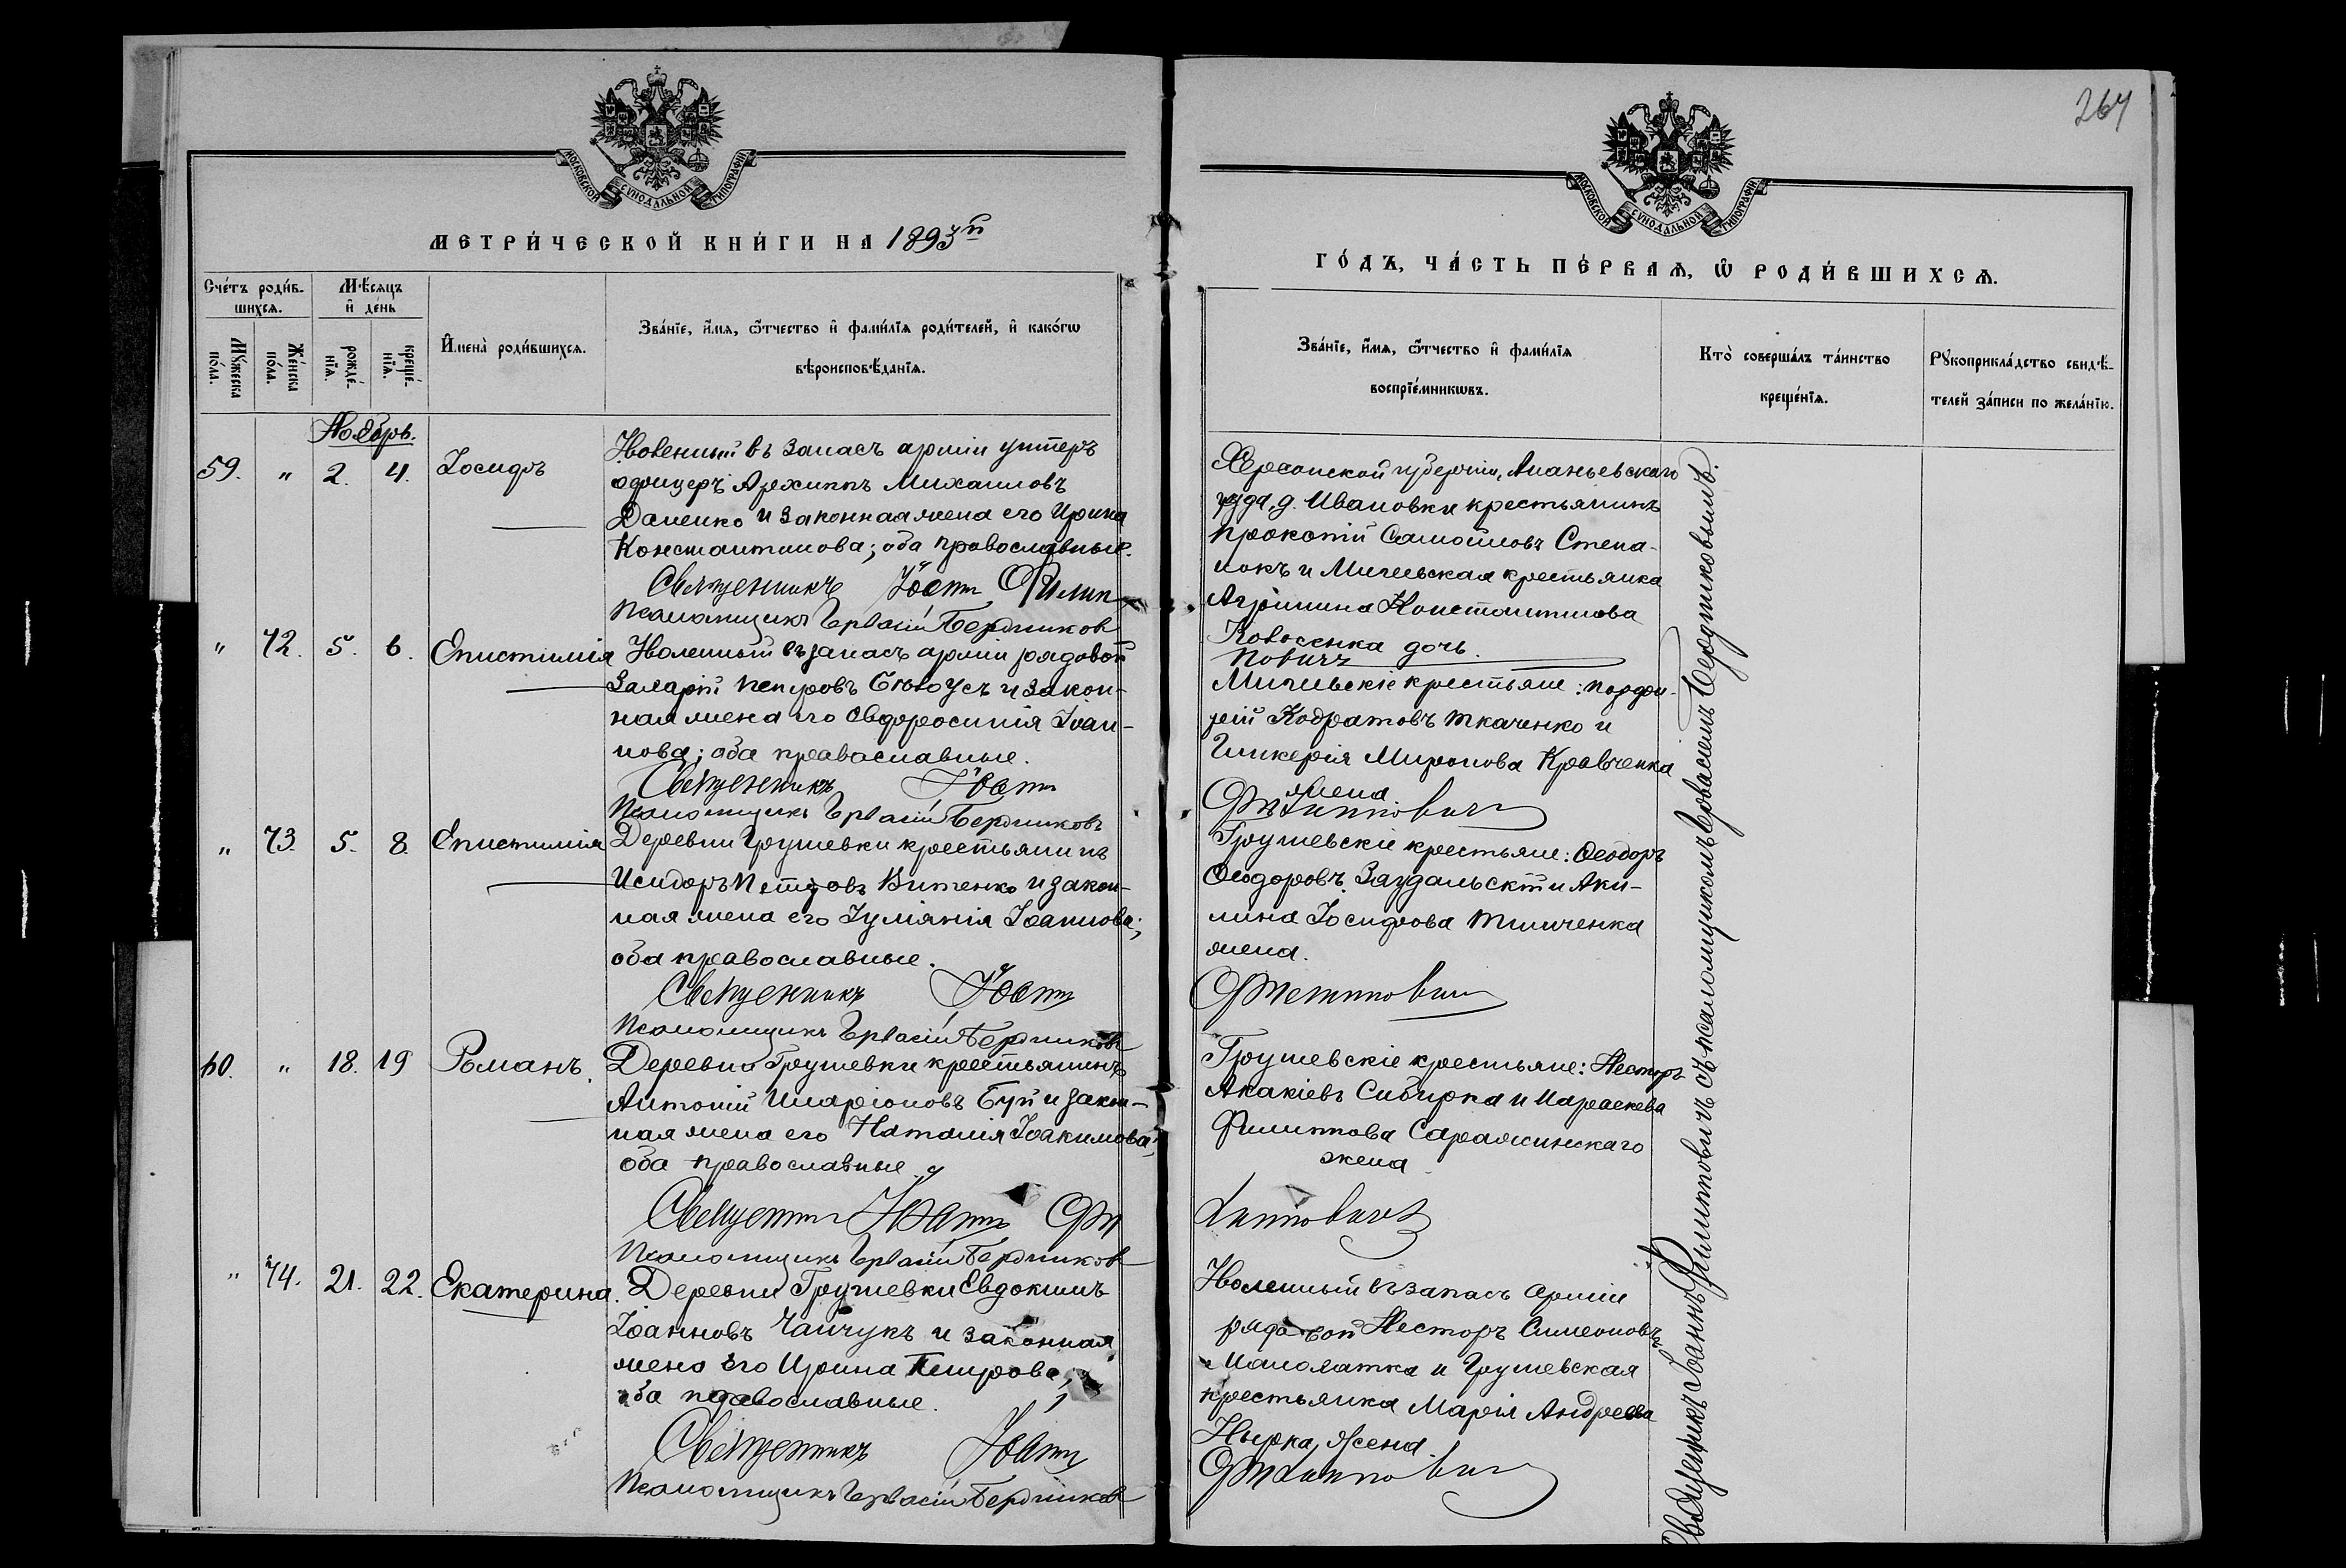 МОСКОВСКОЙ СУНОДАЛЬНОЙ ТИПОГРАФІИ
МЕТРИ́ЧЕСКОЙ КНИ́ГИ НА 1893й
Сче́тъ роди́в-
шихсѧ.
Мѣ́сѧцъ
и҆ де́нь
Мꙋ́жеска
по́ла.
Же́нска
по́ла.
рожде́-
нїѧ.
креще́-
нїѧ.
И҆мена̀ роди́вшихсѧ.
Зва́нїе, и҆́мѧ, ѻ҆́тчество и҆ фами́лїѧ роди́телей, и҆ како́гѡ
вѣроисповѣ́данїѧ.
Ноябрь.
59. " 2. 4. Іосифъ
Уволенный въ запасъ арміи унтеръ
офицеръ Архиппъ Михаиловъ
Даценко и законная жена его Ирина
Константинова; оба православные.
Священникъ Іоаннъ Филип
Псаломщикъ Ервасій Бердников
" 72. 5. 6. Епистимія
Уволенный въ запасъ арміи рядовой
Иларій Петровъ Бѣлоусъ и закон-
ная жена его Евфросинія Іоан-
нова; оба православные.
Священникъ Іоаннъ
Псаломщикъ Ервасій Бердниковъ
" 73. 5. 8. Епистимія
Деревни Грушевки крестьянинъ
Исидоръ Петровъ Витенко и закон-
ная жена его Іуліанія Іоаннова;
оба православные.
Священникъ Іоаннъ
Псаломщикъ Ервасій Бердниковъ
60. " 18. 19 Романъ.
Деревни Грушевки крестьянинъ
Антоній Иларіоновъ Буй и закон-
ная жена его Наталія Іоакимова;
оба православные.
Священникъ Іоаннъ Фи
Псаломщикъ Ервасій Бердников
" 74. 21. 22. Екатерина.
Деревни Грушевки Евдокимъ
Іоанновъ Чайчукъ и законная
жена его Ирина Петрова;
оба православные.
Священникъ Іоаннъ
Псаломщикъ Ервасій Бердников
264
МОСКОВСКОЙ СУНОДАЛЬНОЙ ТИПОГРАФІИ
ГО́ДЪ, ЧА́СТЬ ПЕ́РВАѦ, Ѡ҆ РОДИ́ВШИХСѦ.
Зва́нїе, и҆́мѧ, ѻ҆́тчество и҆ фами́лїѧ
воспрїе́мникѡвъ.
Кто̀ соверша́лъ та́инство
креще́нїѧ.
Рꙋкоприкла́дство свидѣ́-
телей за́писи по жела́нїю.
Херсонской губерніи, Ананьевскаго
уѣзда, д. Ивановки крестьянинъ
Прокопій Самойловъ Степа-
нокъ и Мигіевская крестьянка
Агрипина Константинова
дочь.
повичъ
Мигіевскіе крестьяне: Порфи-
рій Кодратовъ Ткаченко и
Гликерія Миронова Кравченка
жена
Филипповичъ
Грушевскіе крестьяне: Ѳеодоръ
Ѳеодоровъ Заудальскій и Аки-
лина Іосифова Тимченка
жена.
Филипповичъ
Грушевскіе крестьяне: Несторъ
Акакіевъ Сибирка и Параскева
Филиппова Саражинскаго
жена
липповичъ
Уволенный въ запасъ арміи
рядовой Несторъ Симеоновъ
Маломатка и Грушевская
крестьянка Марія Андреева
Нырка, жена.
Филипповичъ
Священникъ Іоаннъ Филипповичъ съ псаломщикомъ Ервасіемъ Бердниковымъ.